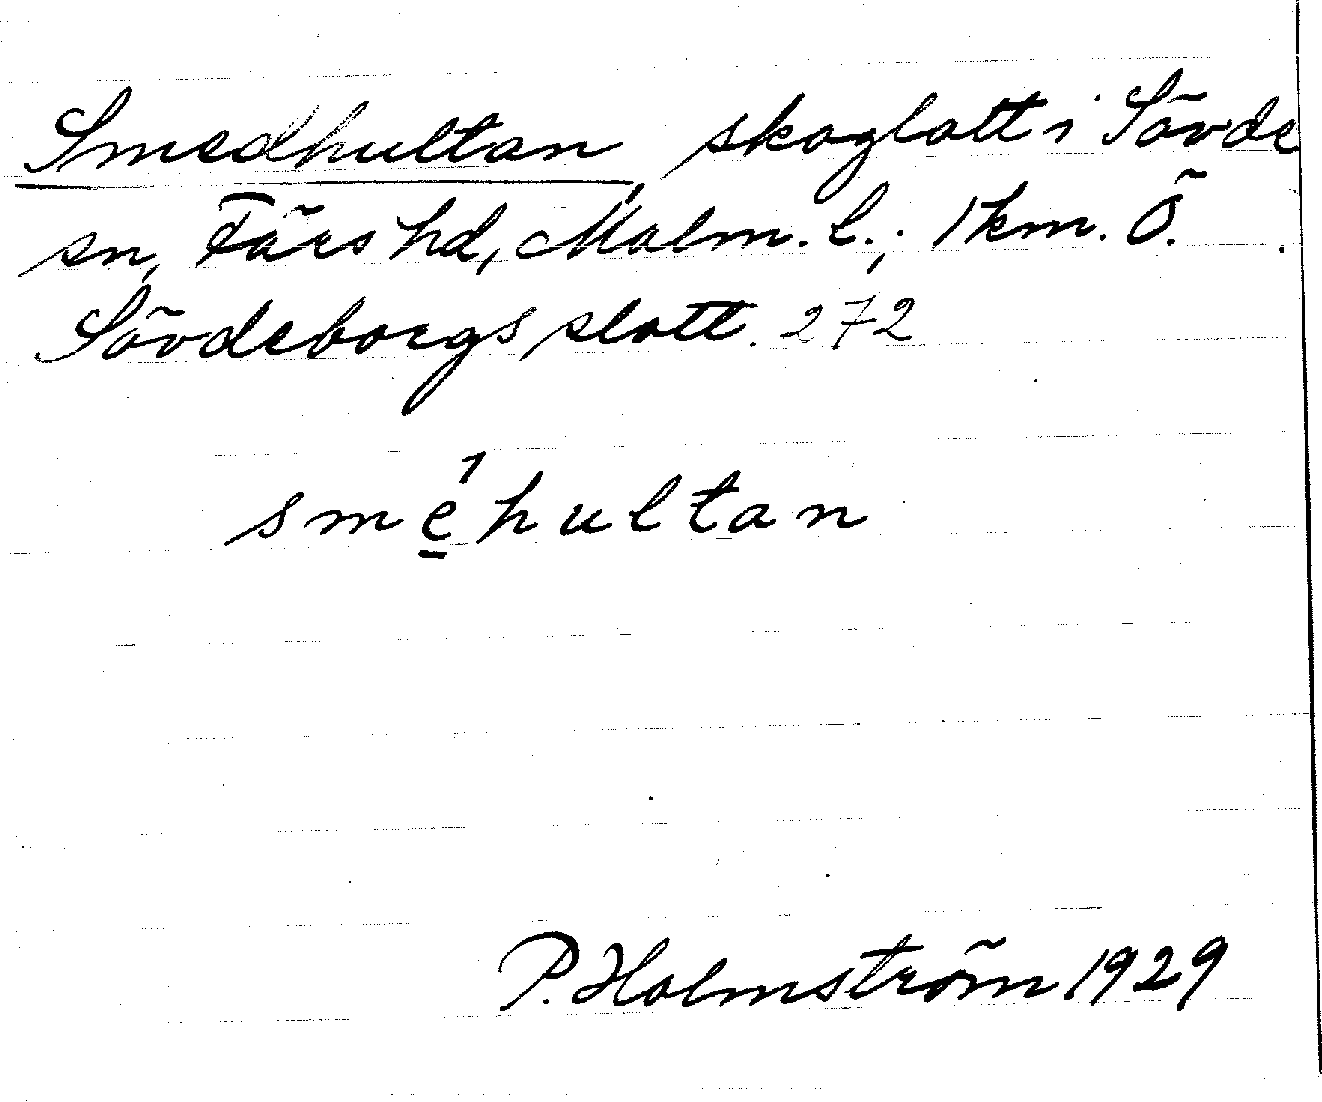 Smedhultan, skoglott i Sövde
sn, Färs hd, Malm. l.; 1 km. Ö.
Sövdeborgs slott. 272
sme̲´hultan
P. Holmström 1929